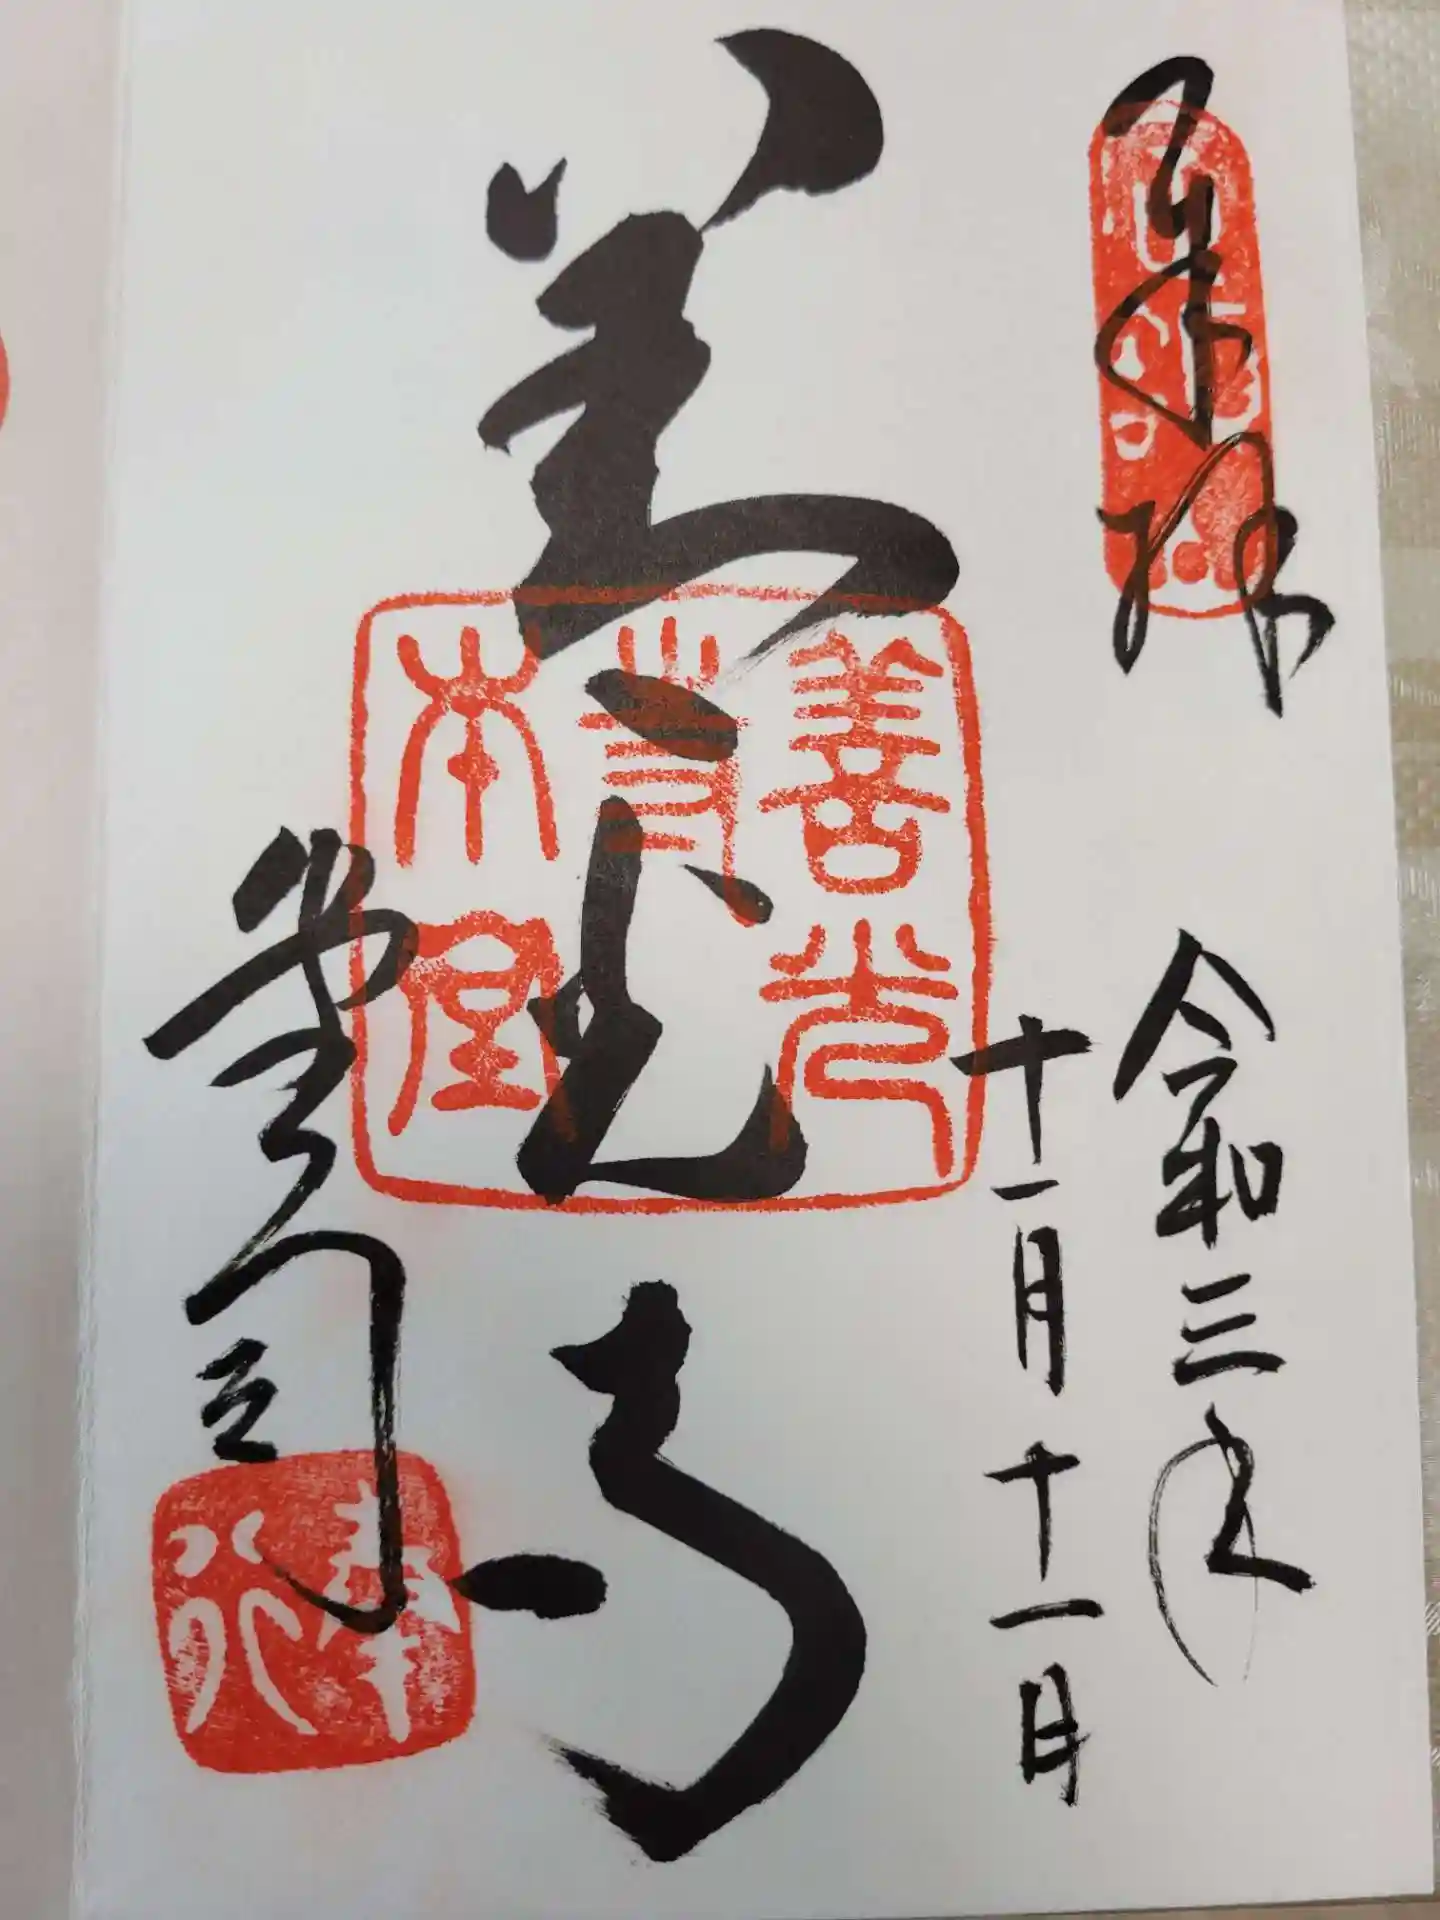 奉拝
令和三年
十一月十一日
善光寺
善光
寺
本堂
堂司
奉行